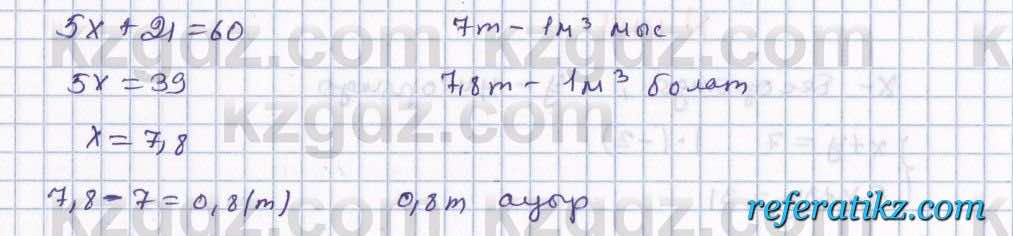 5x + 21 = 60 7т - 1м³ мыс
5x = 39 7,8т - 1м³ болат
x = 7,8
7,8 - 7 = 0,8 (т) 0,8т ауыр
kzgdz.com
referatikz.com